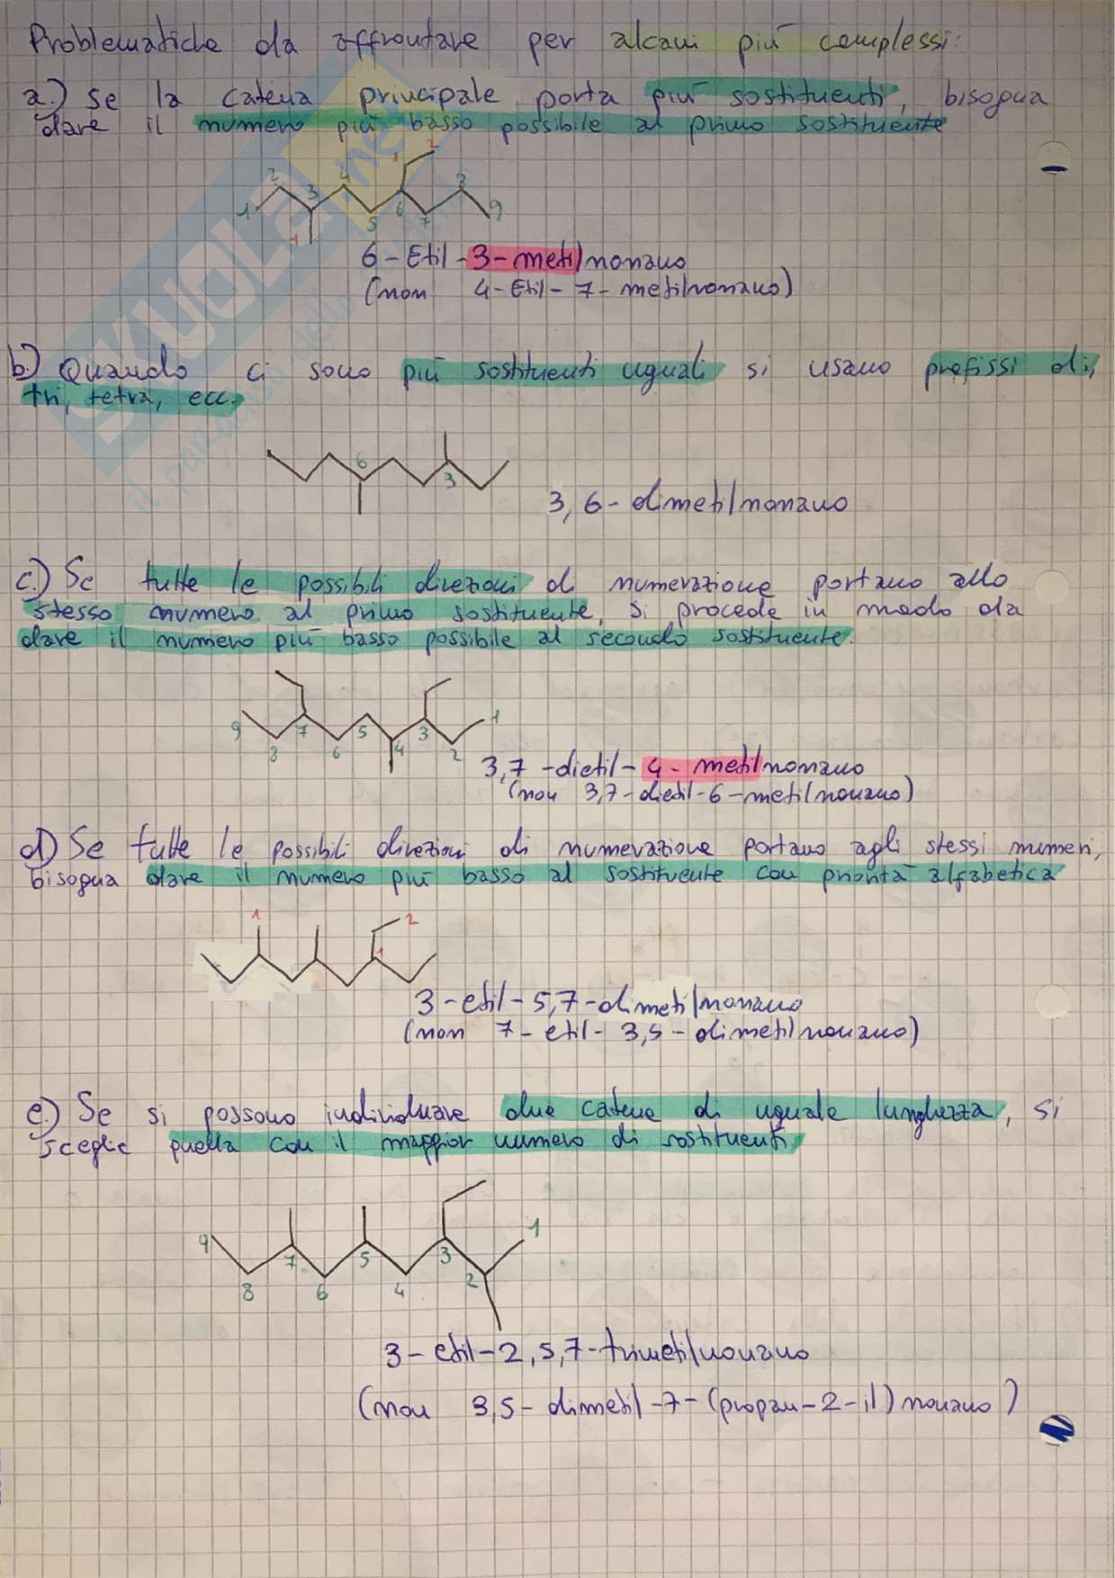 Problematiche da affrontare per alcani più complessi:
a.) Se la catena principale porta più sostituenti, bisogna
dare il numero più basso possibile al primo sostituente
1 2
2 4 8
1 3 6 9
5 7
1
6-Etil-3-metilnonano
(non 4-Etil-7-metilnonano)
b.) Quando ci sono più sostituenti uguali si usano prefissi di,
tri, tetra, ecc.
6 3
3,6-dimetilnonano
c.) Se tutte le possibili direzioni di numerazione portano allo
stesso numero al primo sostituente, si procede in modo da
dare il numero più basso possibile al secondo sostituente.
9 7 5 3 1
8 6 4 2
3,7-dietil-4-metilnonano
(non 3,7-dietil-6-metilnonano)
d) Se tutte le possibili direzioni di numerazione portano agli stessi numeri,
bisogna dare il numero più basso al sostituente con priorità alfabetica
1 2
1
3-etil-5,7-dimetilnonano
(non 7-etil-3,5-dimetilnonano)
e.) Se si possono individuare due catene di uguale lunghezza, si
sceglie quella con il maggior numero di sostituenti
9 7 5 3 1
8 6 4 2
3-etil-2,5,7-trimetilnonano
(non 3,5-dimetil-7-(propan-2-il)nonano)
SKUOLA.net